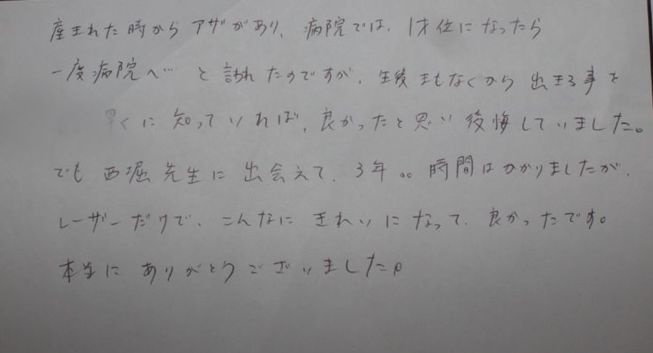 産まれた時から アザがあり、病院では、1才位になったら
一度病院へ… と言われたのですが、生後まもなくから 出来る事を
早くに 知っていれば、良かったと思い 後悔していました。
でも 西堀先生に 出会えて、3年。。時間はかかりましたが、
レーザーだけで、こんなに きれいになって、良かったです。
本当に ありがとうございました。